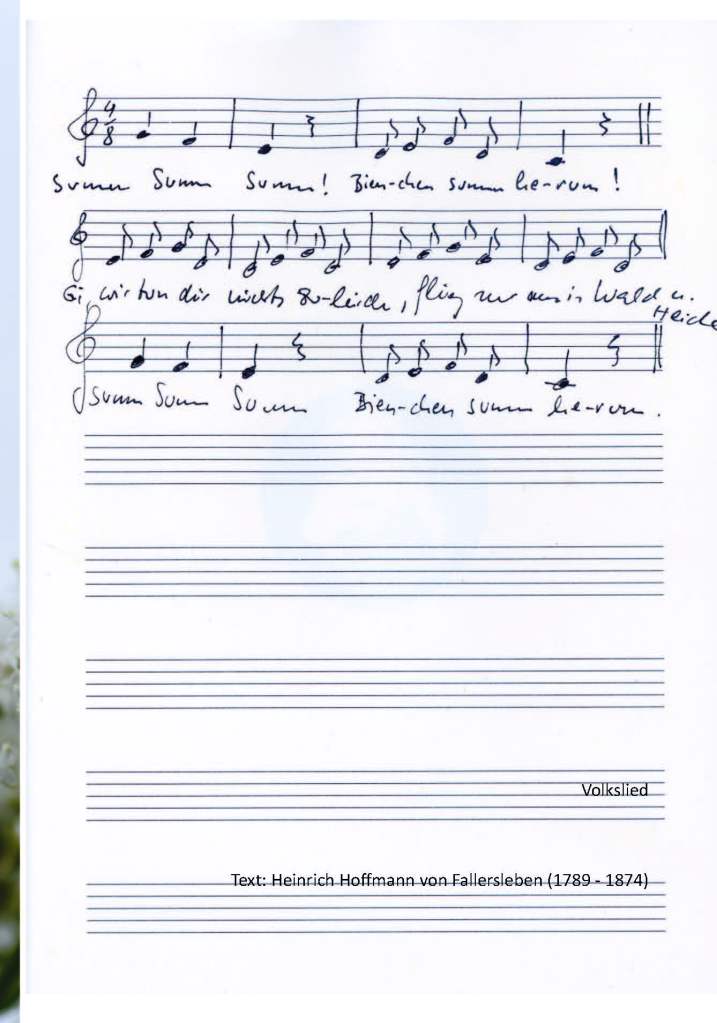 4/8
Summ Summ Summ! Bien-chen summ he-rum!
Ei, wir tun dir nichts zu-leide, flieg nur aus in Wald u.
Heide
Summ Summ Summ Bien-chen summ he-rum.
Volkslied
Text: Heinrich Hoffmann von Fallersleben (1789 - 1874)